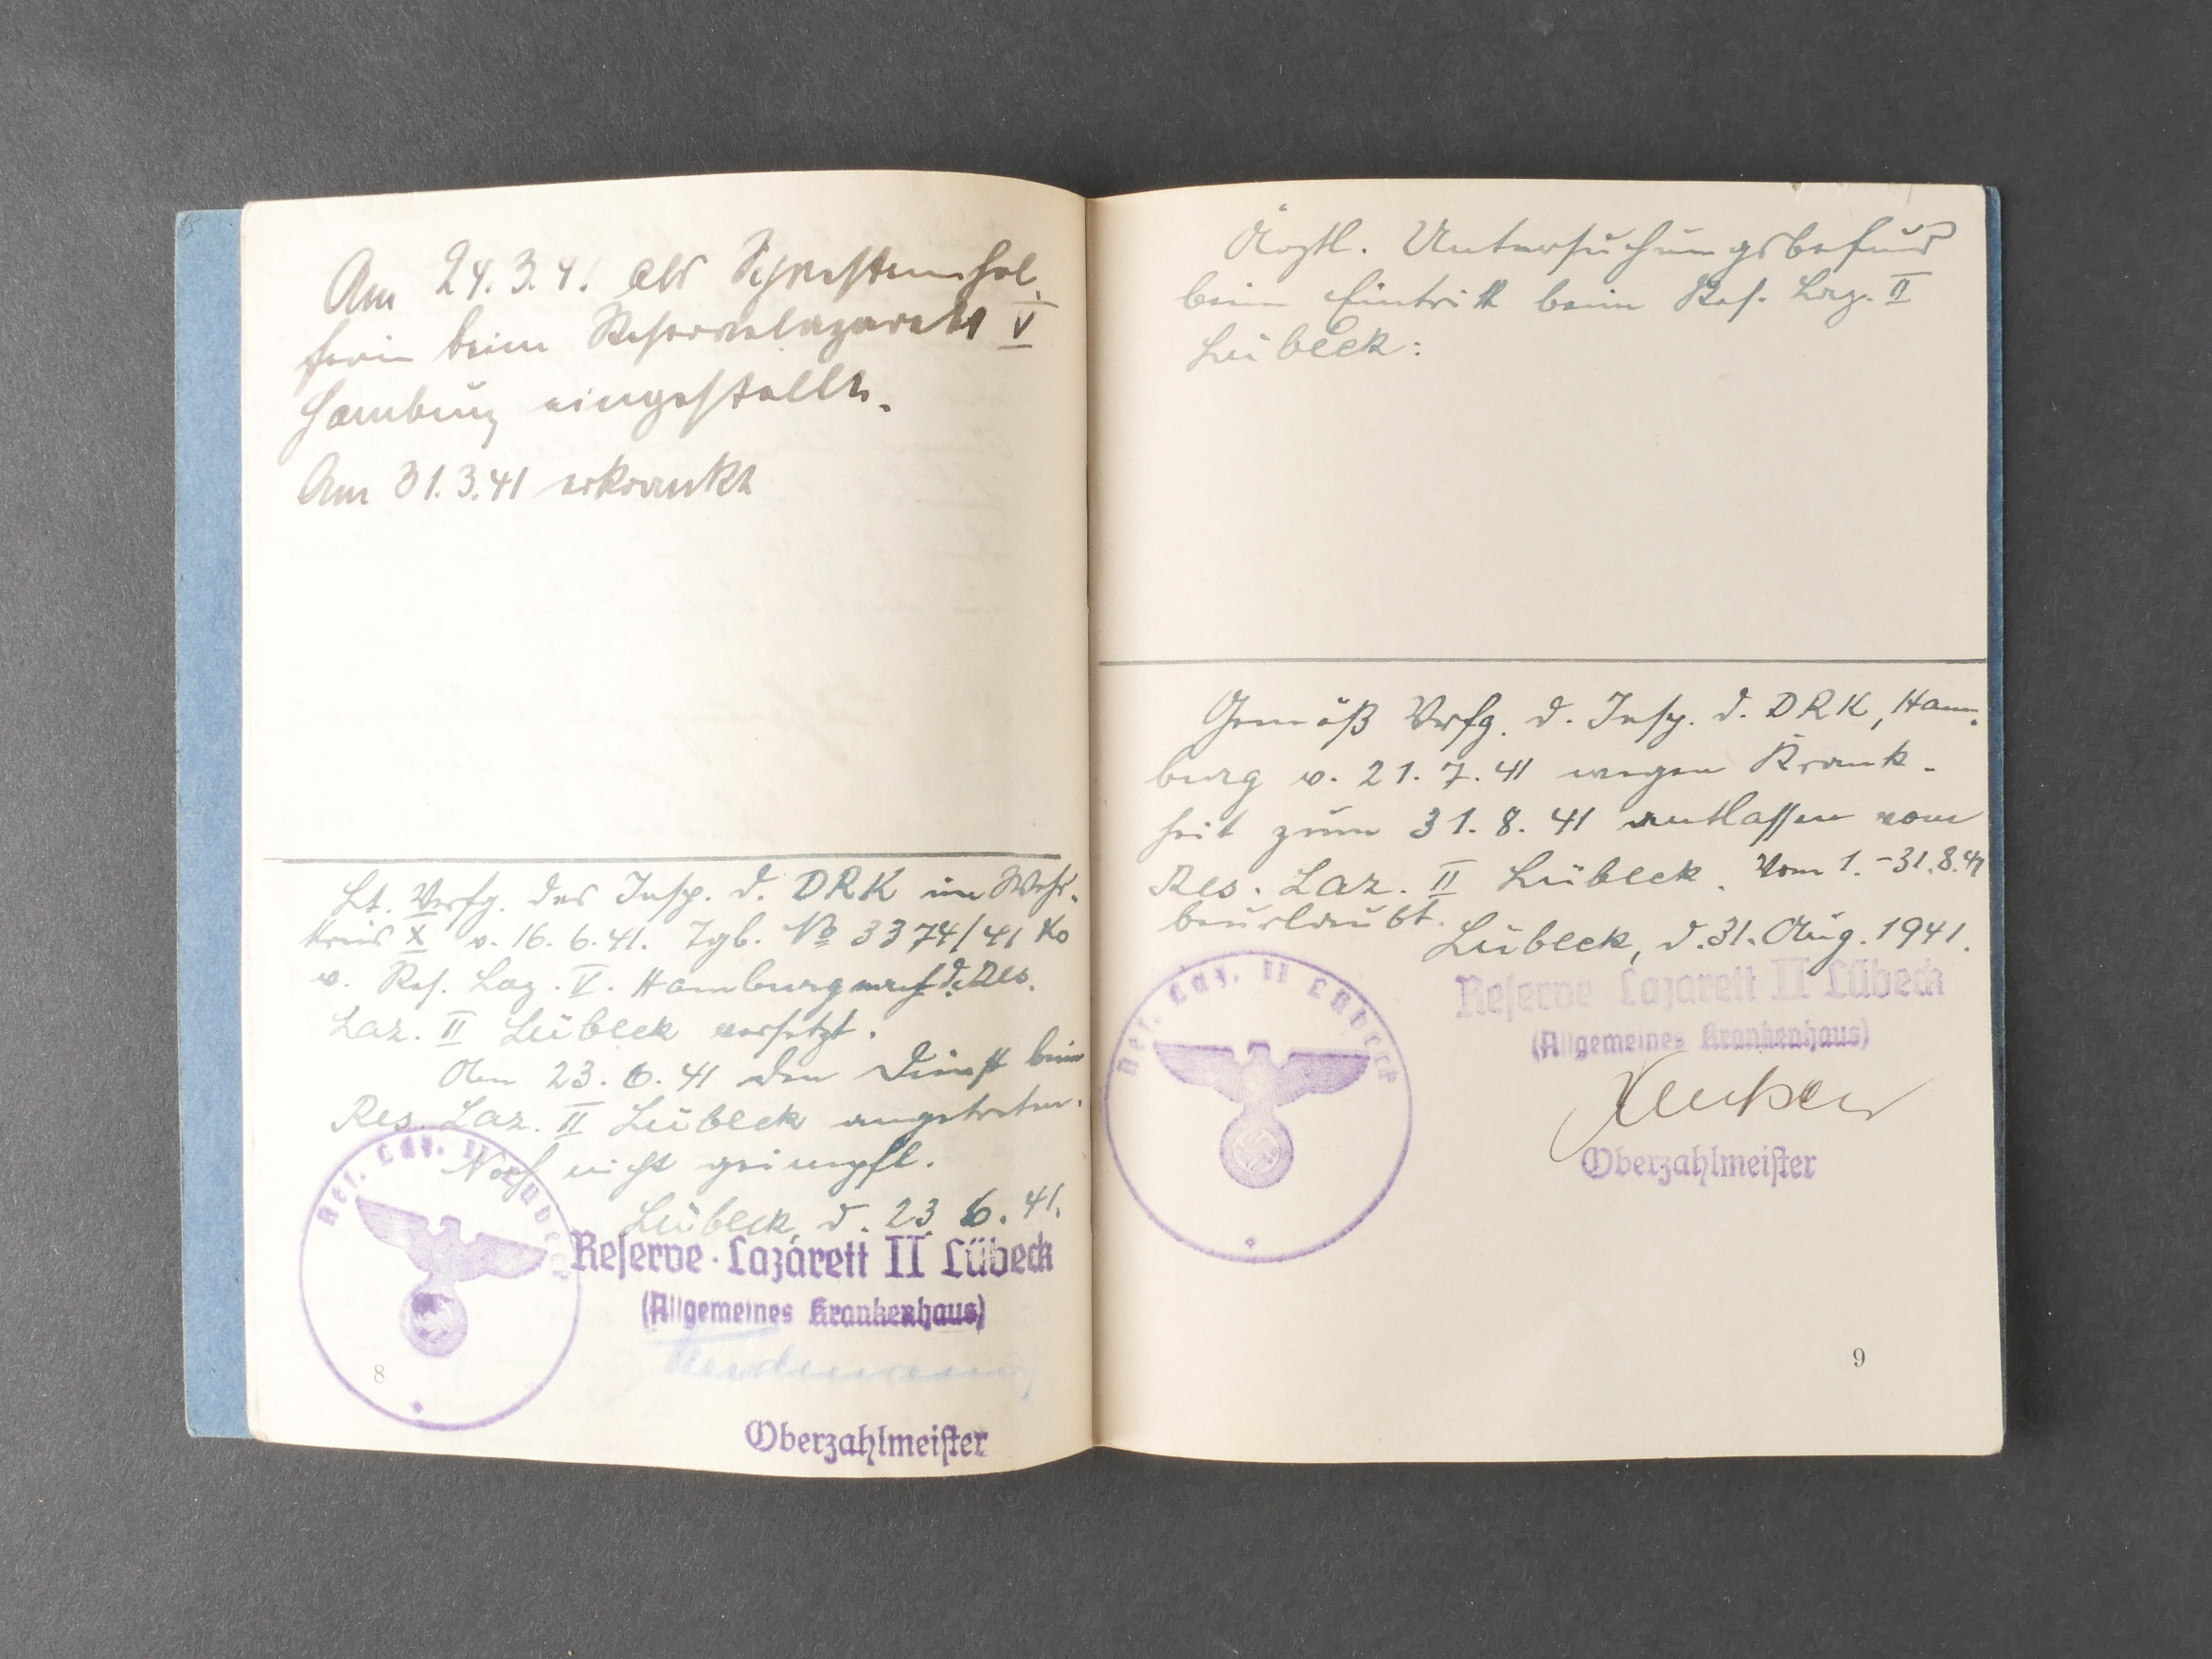 Am 24.3.41 als Schwesternhel-
ferin beim Reservelazarett V
Hamburg eingestellt.
Am 31.3.41 erkrankt
Lt. Verfg. des Insp. d. DRK im Wehr-
kreis X v. 16.6.41. Tgb. No 3374/41 Ko
v. Res. Laz. V. Hamburg nach d. Res.
Laz. II Lübeck versetzt.
Am 23.6.41 den Dienst beim
Res. Laz. II Lübeck angetreten.
Noch nicht geimpft.
Lübeck, d. 23.6.41.
Res. Laz. II Lübeck
Reserve-Lazarett II Lübeck
(Allgemeines Krankenhaus)
Oberzahlmeister
8
Ärztl. Untersuchungsbefund
beim Eintritt beim Res. Laz. II
Lübeck:
Gemäß Verfg. d. Insp. d. DRK, Ham-
burg v. 21.7.41 wegen Krank-
heit zum 31.8.41 entlassen vom
Res. Laz. II Lübeck. Vom 1.-31.8.41
beurlaubt.
Lübeck, d. 31. Aug. 1941.
Res. Laz. II Lübeck
Reserve Lazarett II Lübeck
(Allgemeines Krankenhaus)
Oberzahlmeister
9